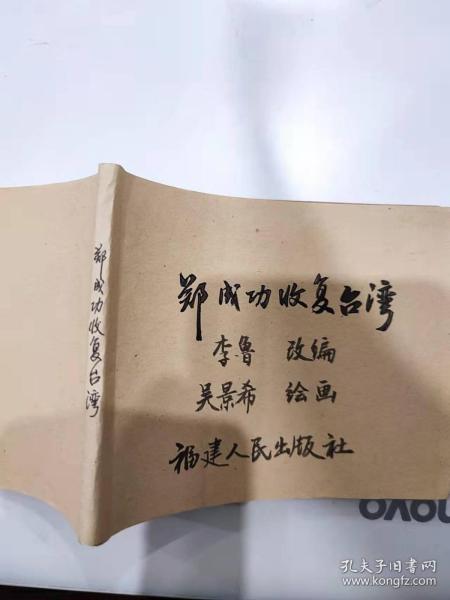 郑成功收复台湾
郑成功收复台湾
李鲁 改编
吴景希 绘画
福建人民出版社
novo
孔夫子旧书网
www.kongfz.com